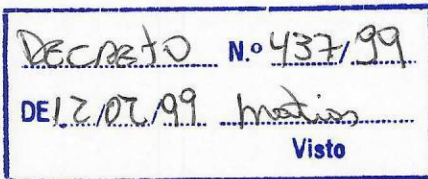 DECRETO N.º 437/99
DE 12/02/99 Matias
Visto